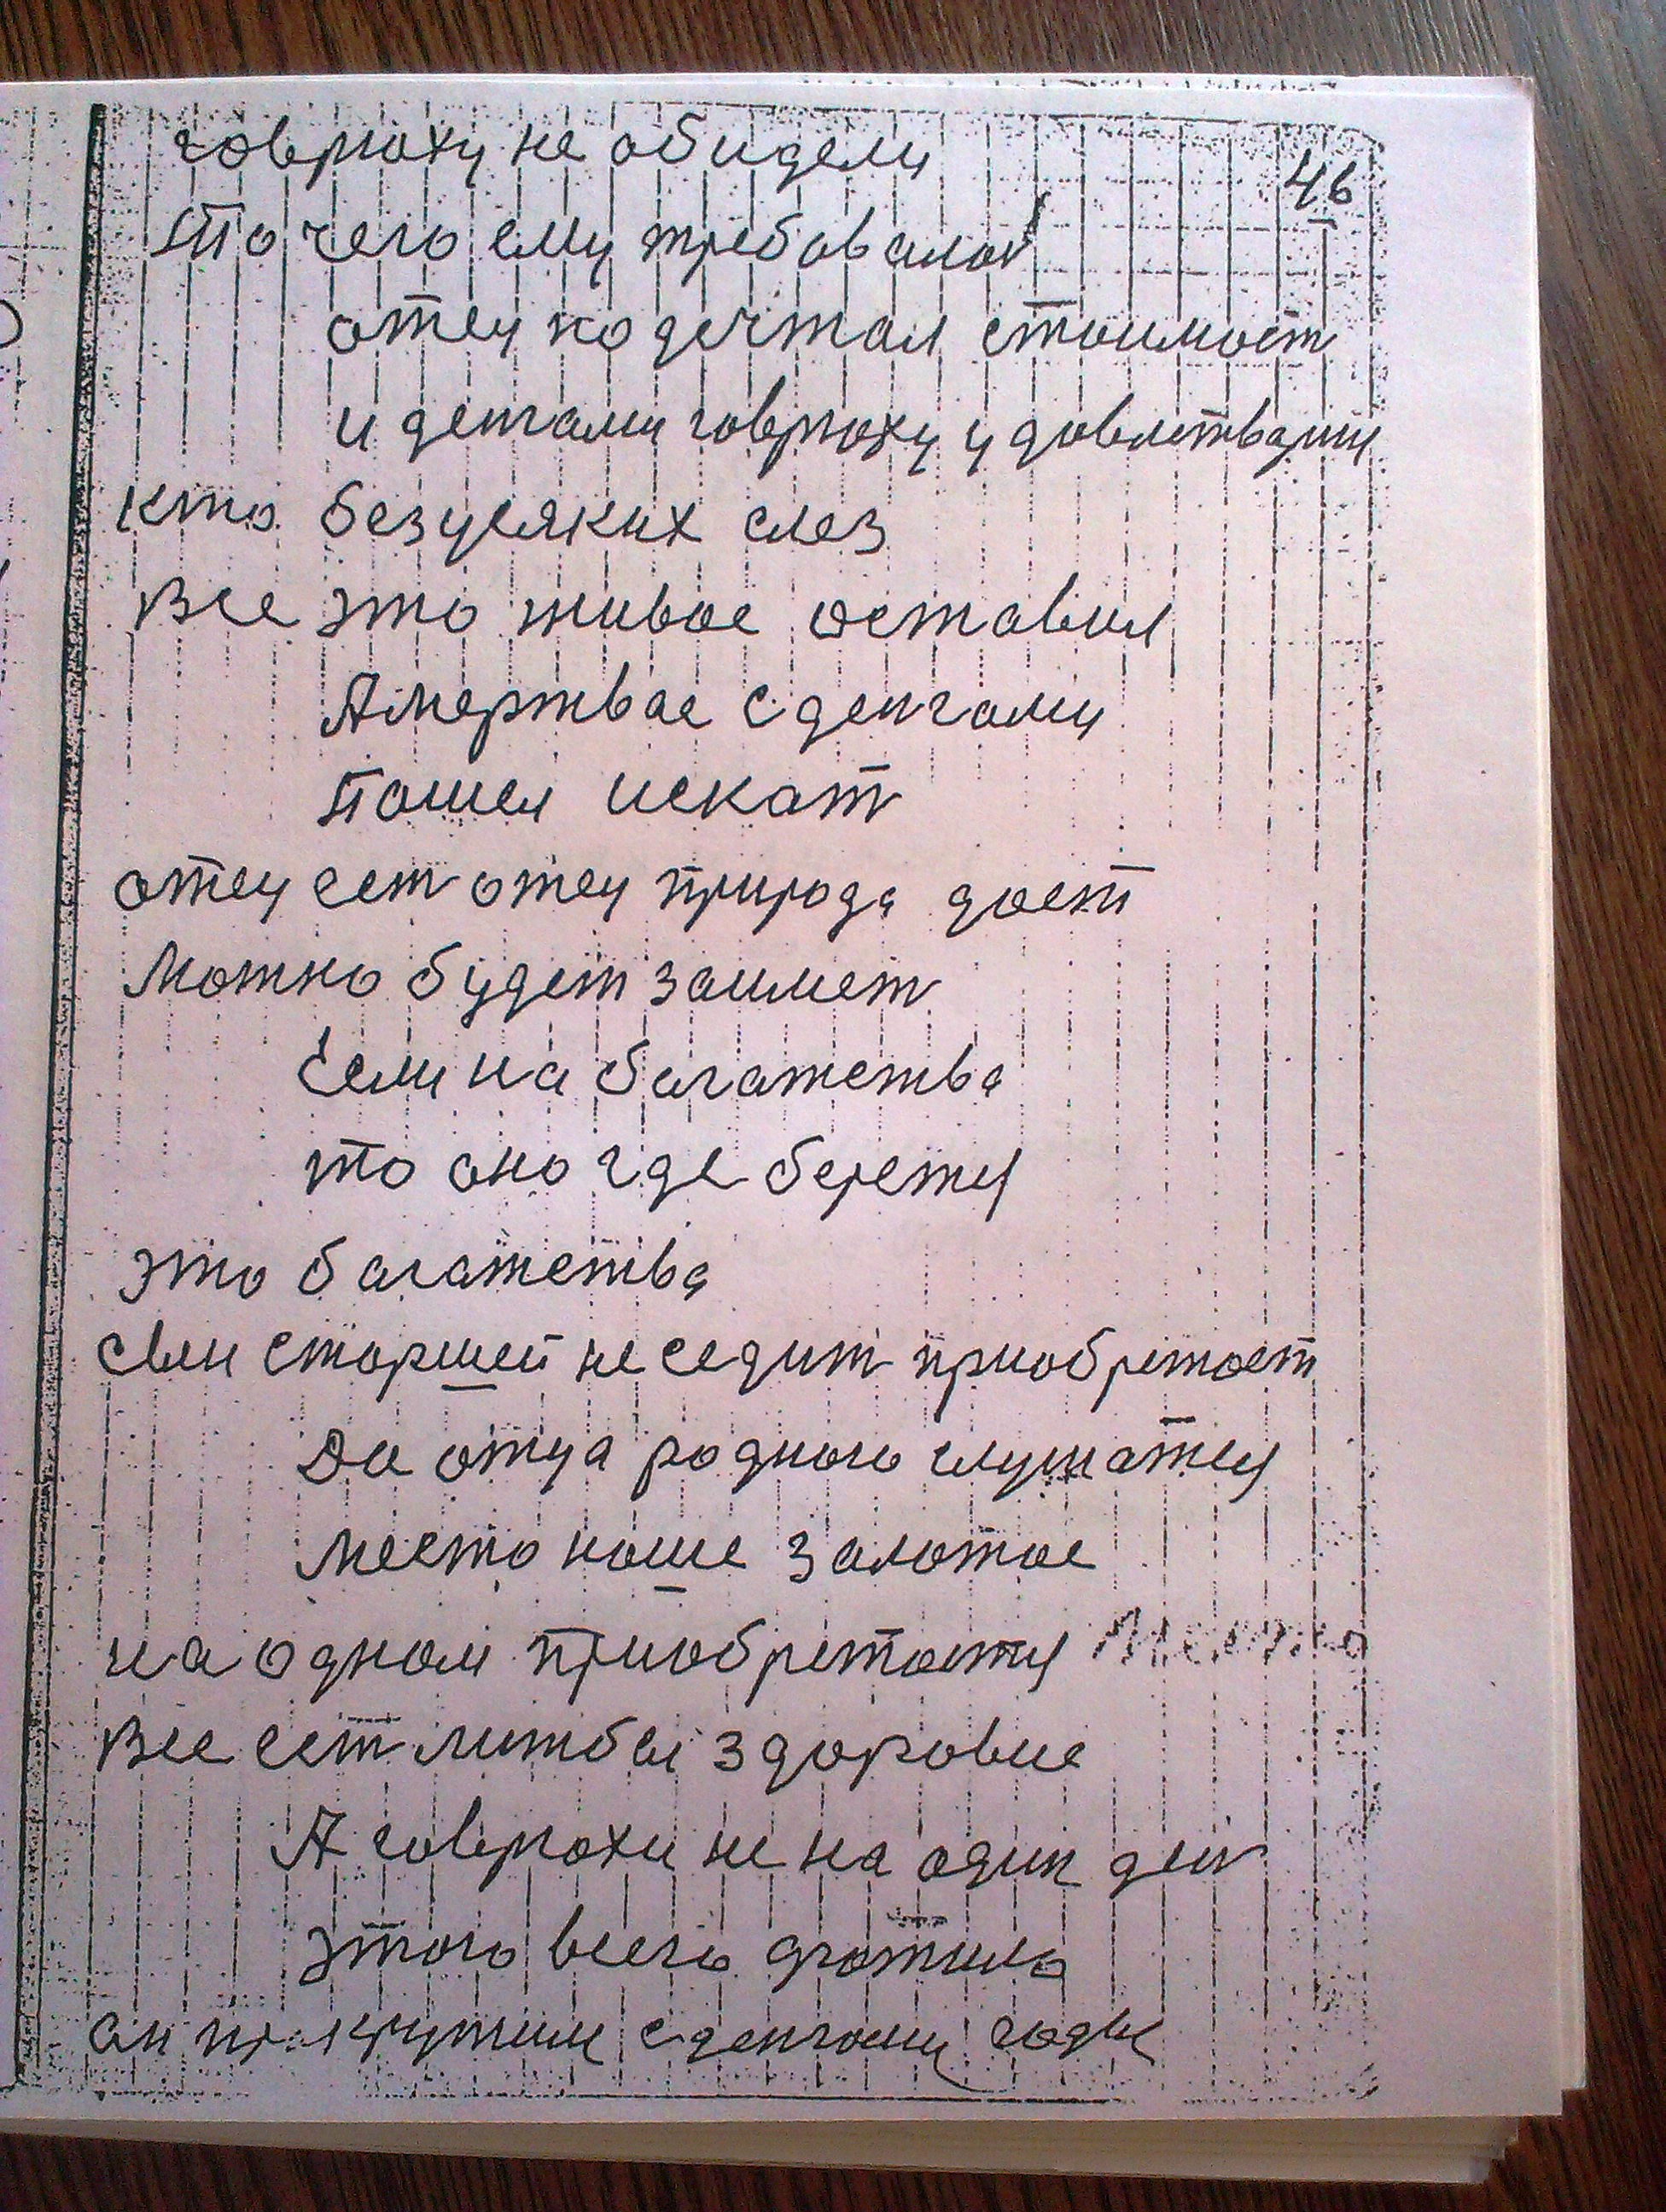 46
говрюху не обидели
што чего ему требовалос
отец
и денгами говрюху удовлетварили
кто безусяких слез
Все это живое оставил
А мертвае с денгами
пошел искат
отец ест отец природа дает
Можно будет заимет
Если на багатства
то оно где берется
это багатства
свин старшей не седит приобретает
Да отца родного слушается
место наше золотое
на одном приобретается место
Все ест лижбы здоровие
А говрюхи не на один ден
этого всего хватило
он прикрутили с денгами годы